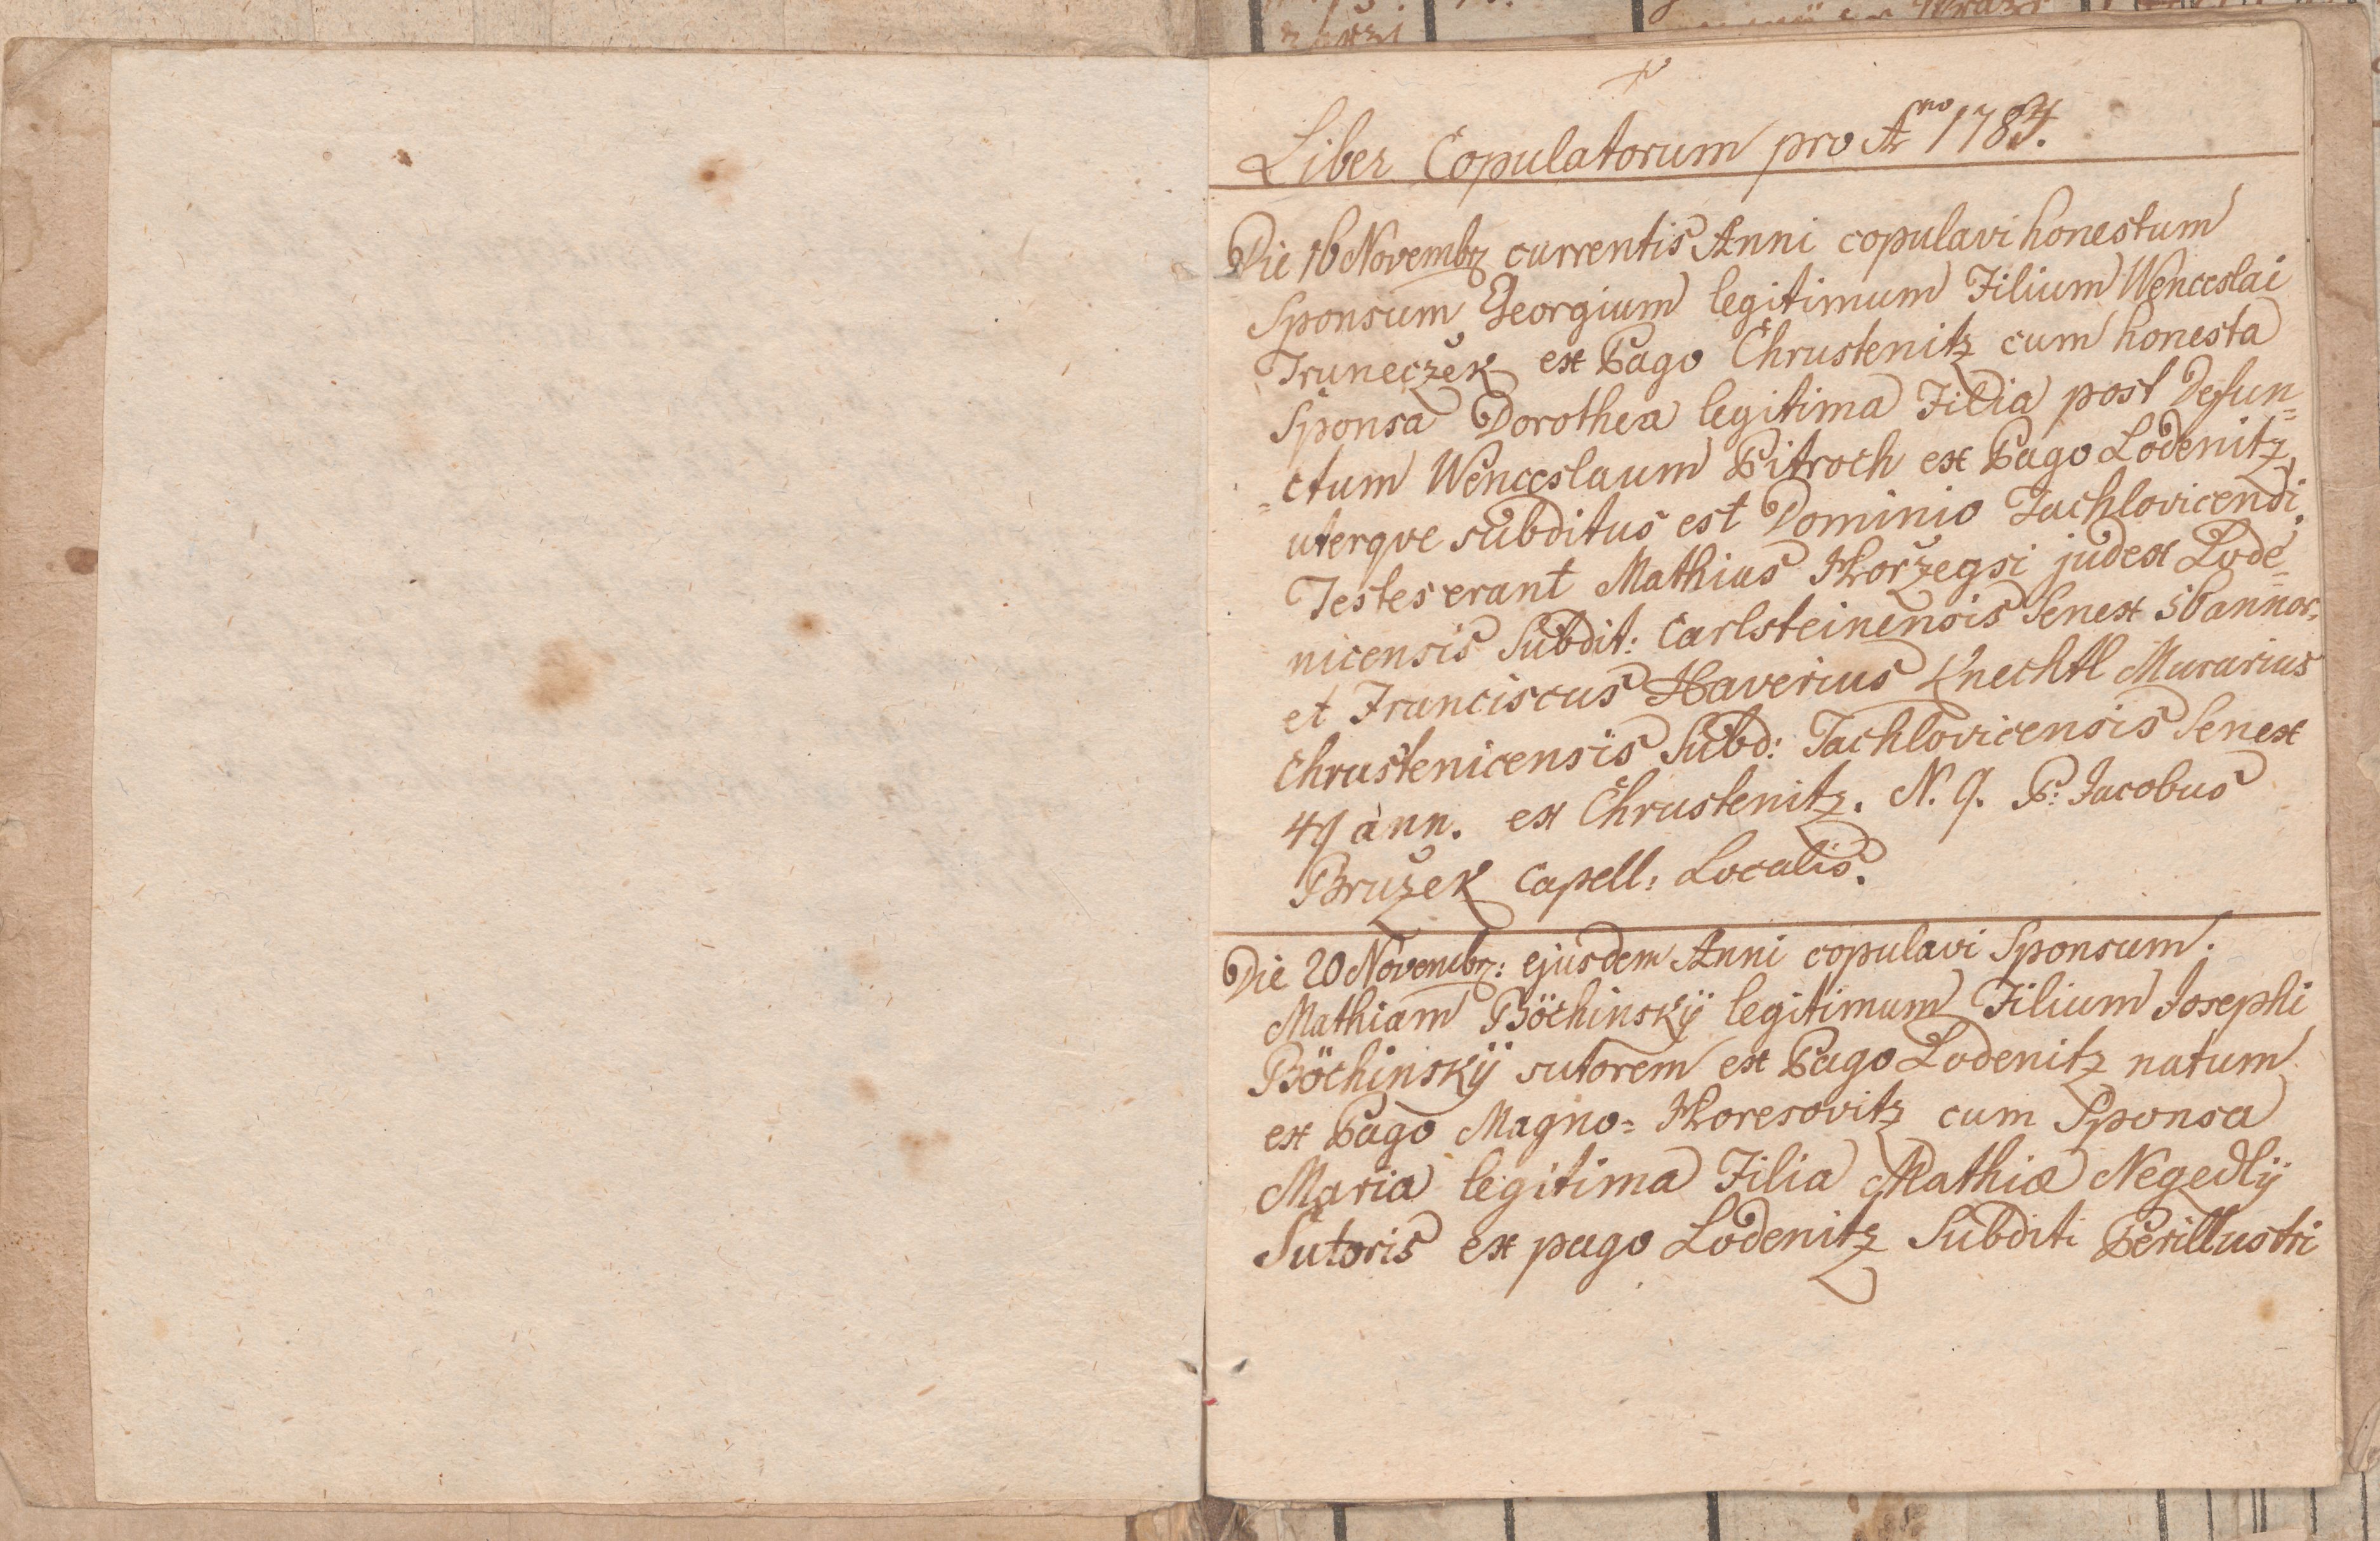 Liber Copulatorum pro Ano 1784.
Die 16 Novembr currentis Anni copulavi honestum
Sponsum Georgium legitimum Filium Wenceslai
Truneczek ex Pago Chrustenitz cum honesta
Sponsa Dorothea legitima Filia post Defun=
=ctum Wenceslaum Pitroch ex Pago Lodenitz,
uterqve subditus est Dominio Tachlovicensi.
Testes erant Mathias Horzegsi judex Lode=
nicensis Subdit: Carlsteinensis Senex 56 annor.
et Franciscus Xaverius Knechtl Murarius
Chrustenicensis Subd: Tachlovicensis Senex
49 ann. ex Chrustenitz. N. 9. P: Jacobus
Bruzek Capell: Localis.
Die 20 Novembr: ejusdem Anni copulavi Sponsum.
Mathiam Böchinskÿ legitimum Filium Josephi
Böchinskÿ sutorem ex Pago Lodenitz natum
ex Pago Magno= Horesovitz cum Sponsa
Maria legitima Filia Mathiæ Negedlÿ
Sutoris ex pago Lodenitz Subditi Perillustri